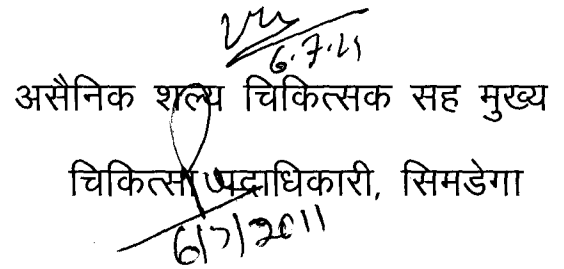 6.7.11
असैनिक शल्य चिकित्सक सह मुख्य
चिकित्सा पदाधिकारी, सिमडेगा
6/7/2011